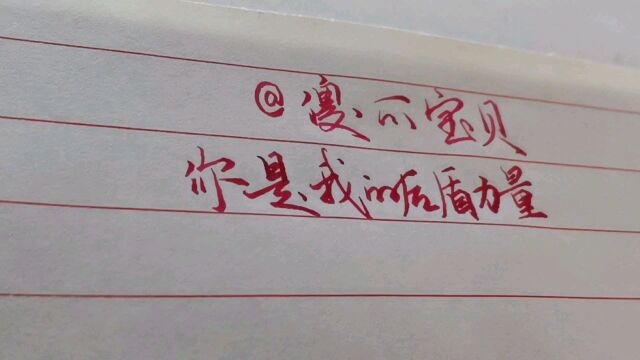 @傻不宝贝
你是我的后盾力量